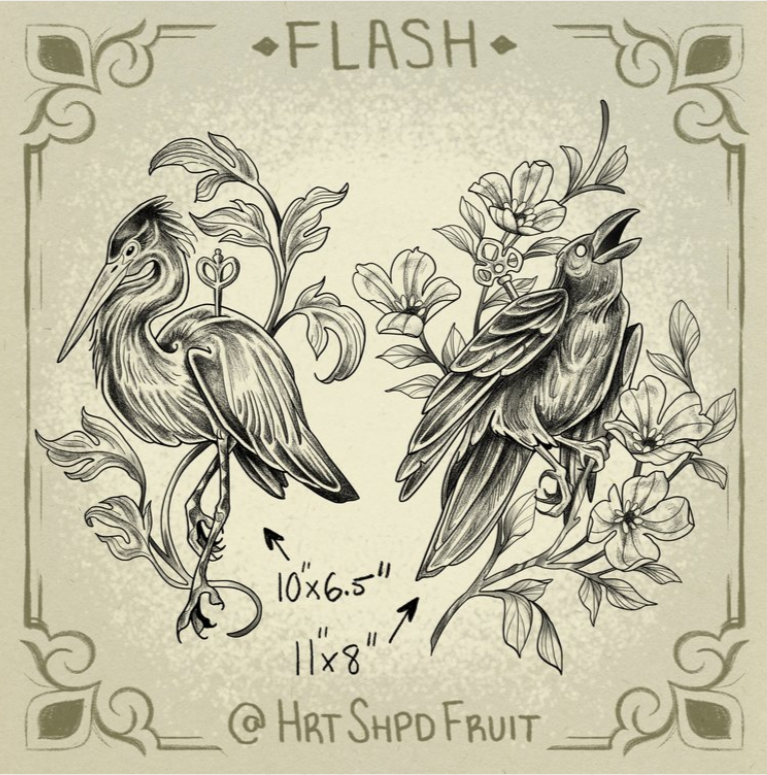 FLASH
10"x6.5"
11"x8"
@HRTSHPDFRUIT